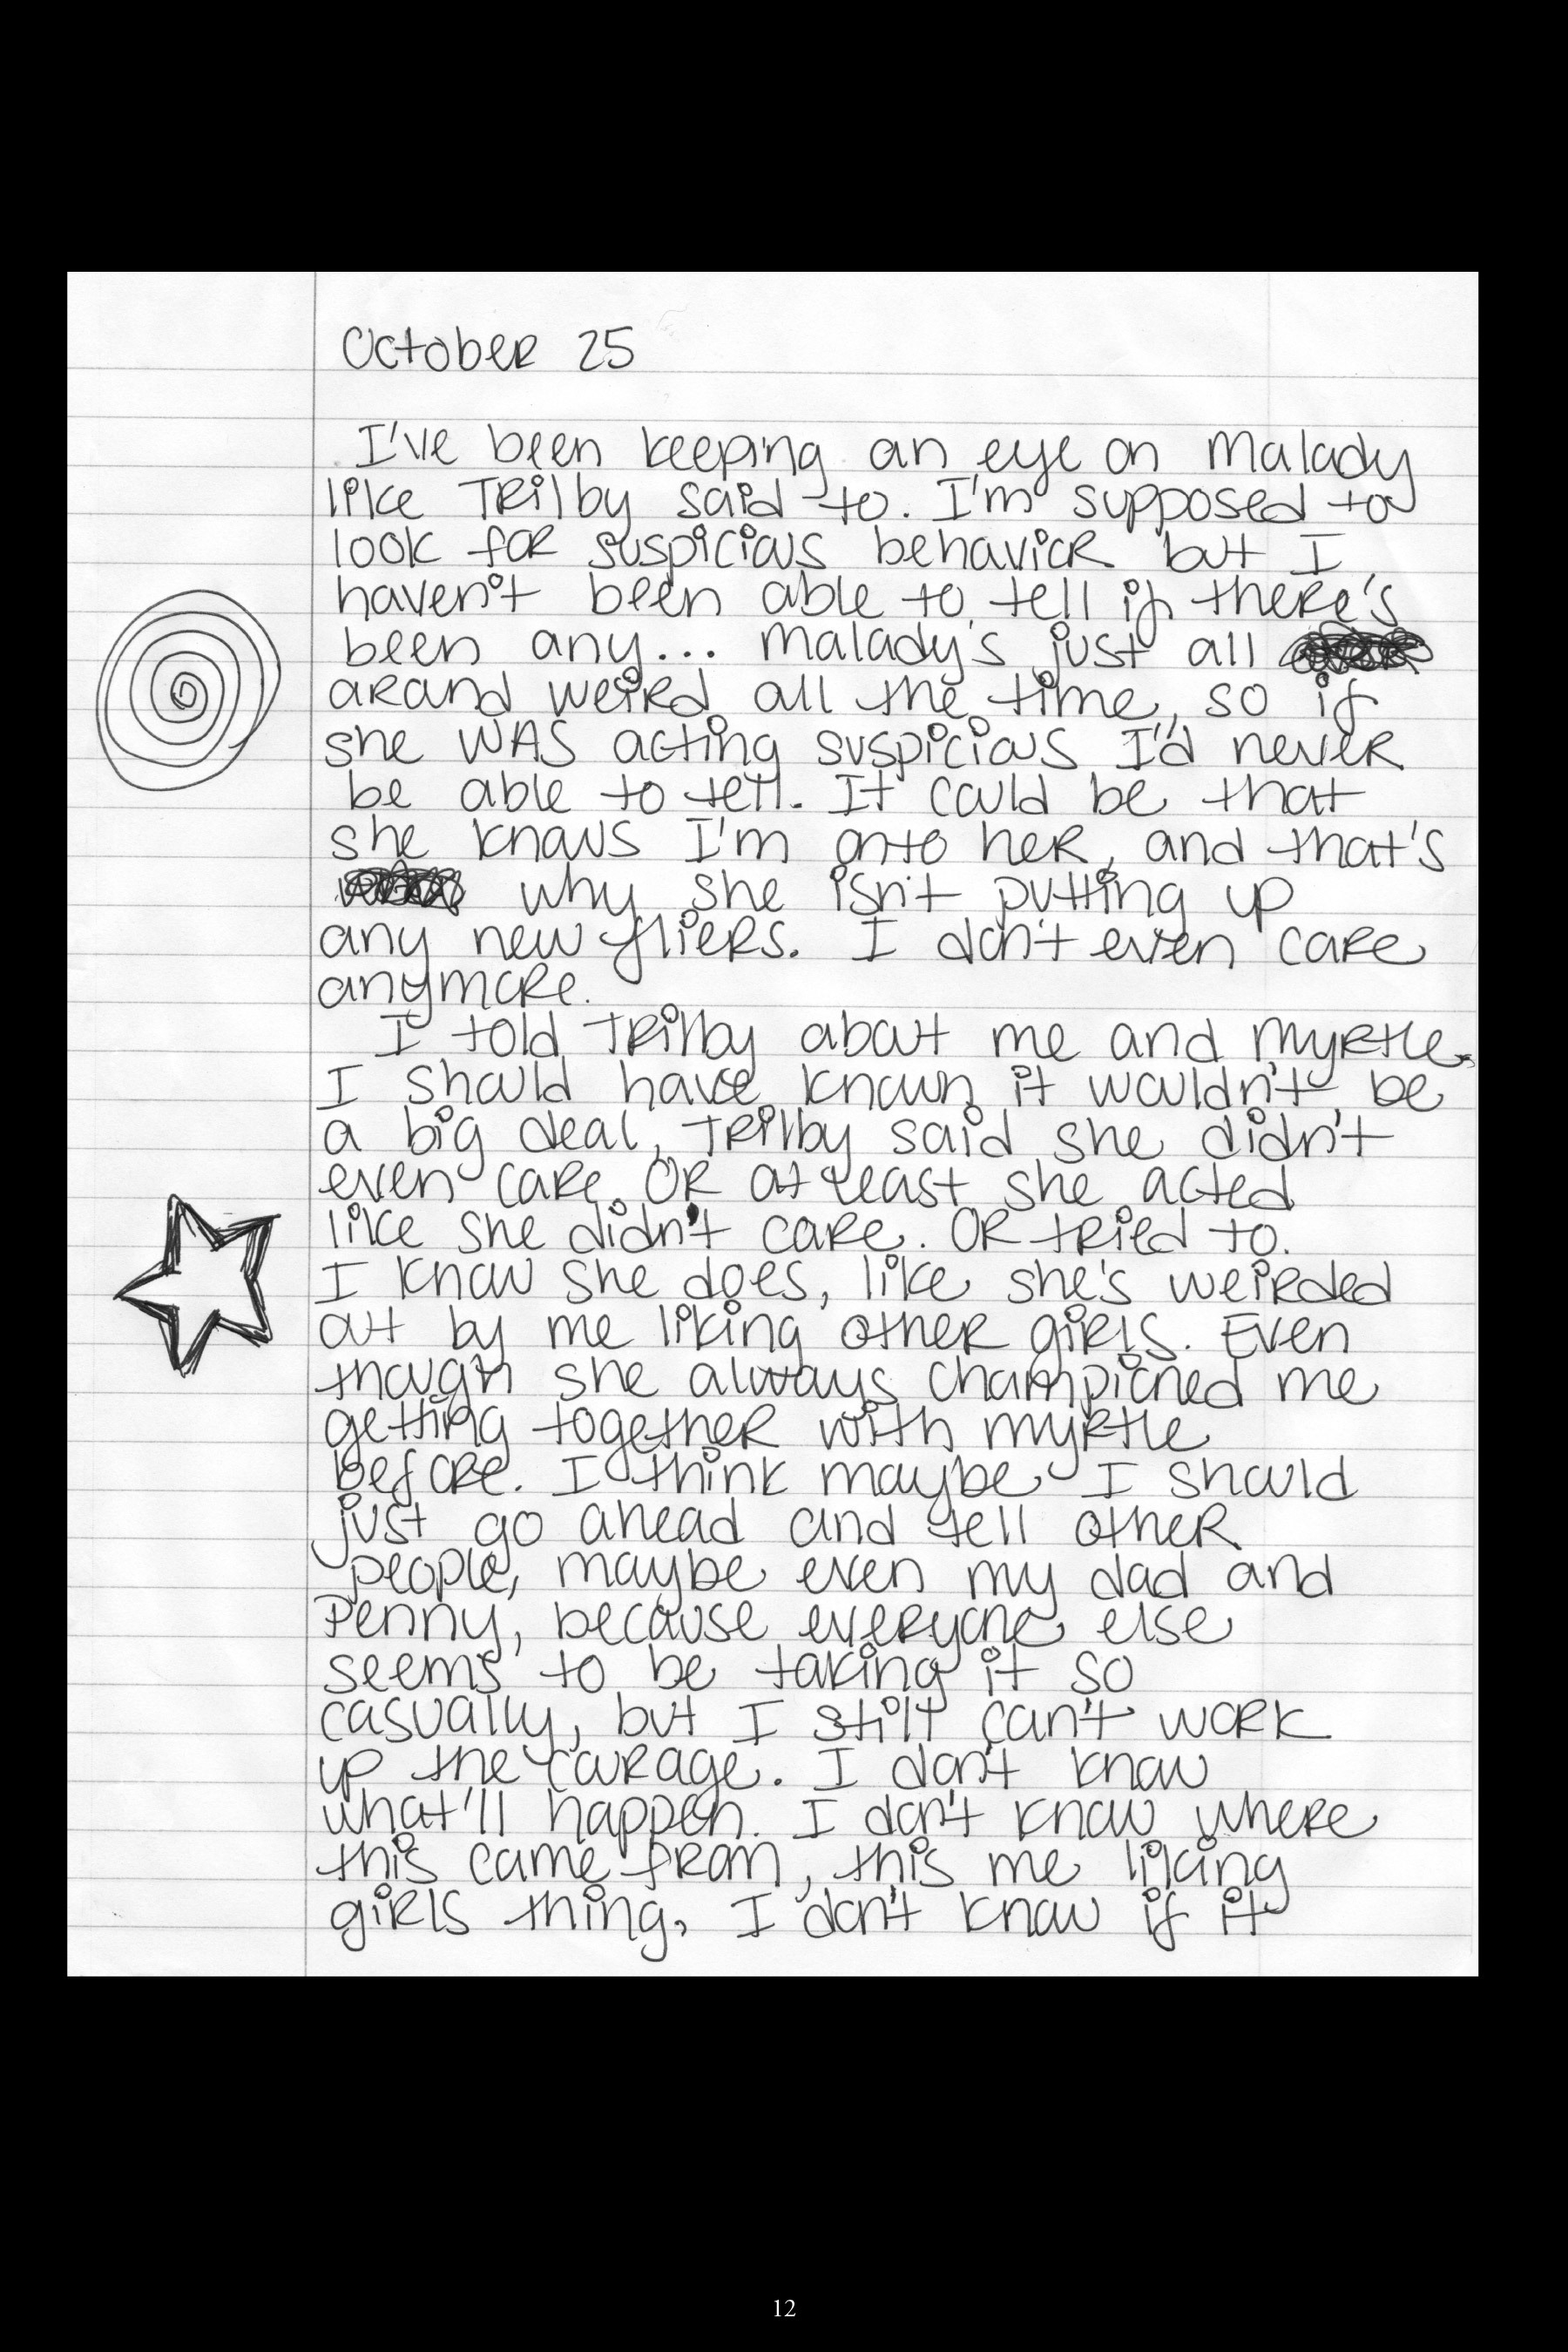 October 25
I've been keeping an eye on Malady
like Trilby said to. I'm supposed to
look for suspicious behavior but I
haven't been able to tell if there's
been any... Malady's just all
around weird all the time, so if
she WAS acting suspicious I'd never
be able to tell. It could be that
she knows I'm onto her, and that's
why she isn't putting up
any new fliers. I don't even care
anymore.
I told Trilby about me and Myrtle.
I should have known it wouldn't be
a big deal, Trilby said she didn't
even care. Or at least she acted
like she didn't care. Or tried to.
I know she does, like she's weirded
out by me liking other girls. Even
though she always championed me
getting together with Myrtle
before. I think maybe I should
just go ahead and tell other
people, maybe even my dad and
Penny, because everyone else
seems to be taking it so
casually, but I still can't work
up the courage. I don't know
what'll happen. I don't know where
this came from, this me liking
girls thing, I don't know if it
12